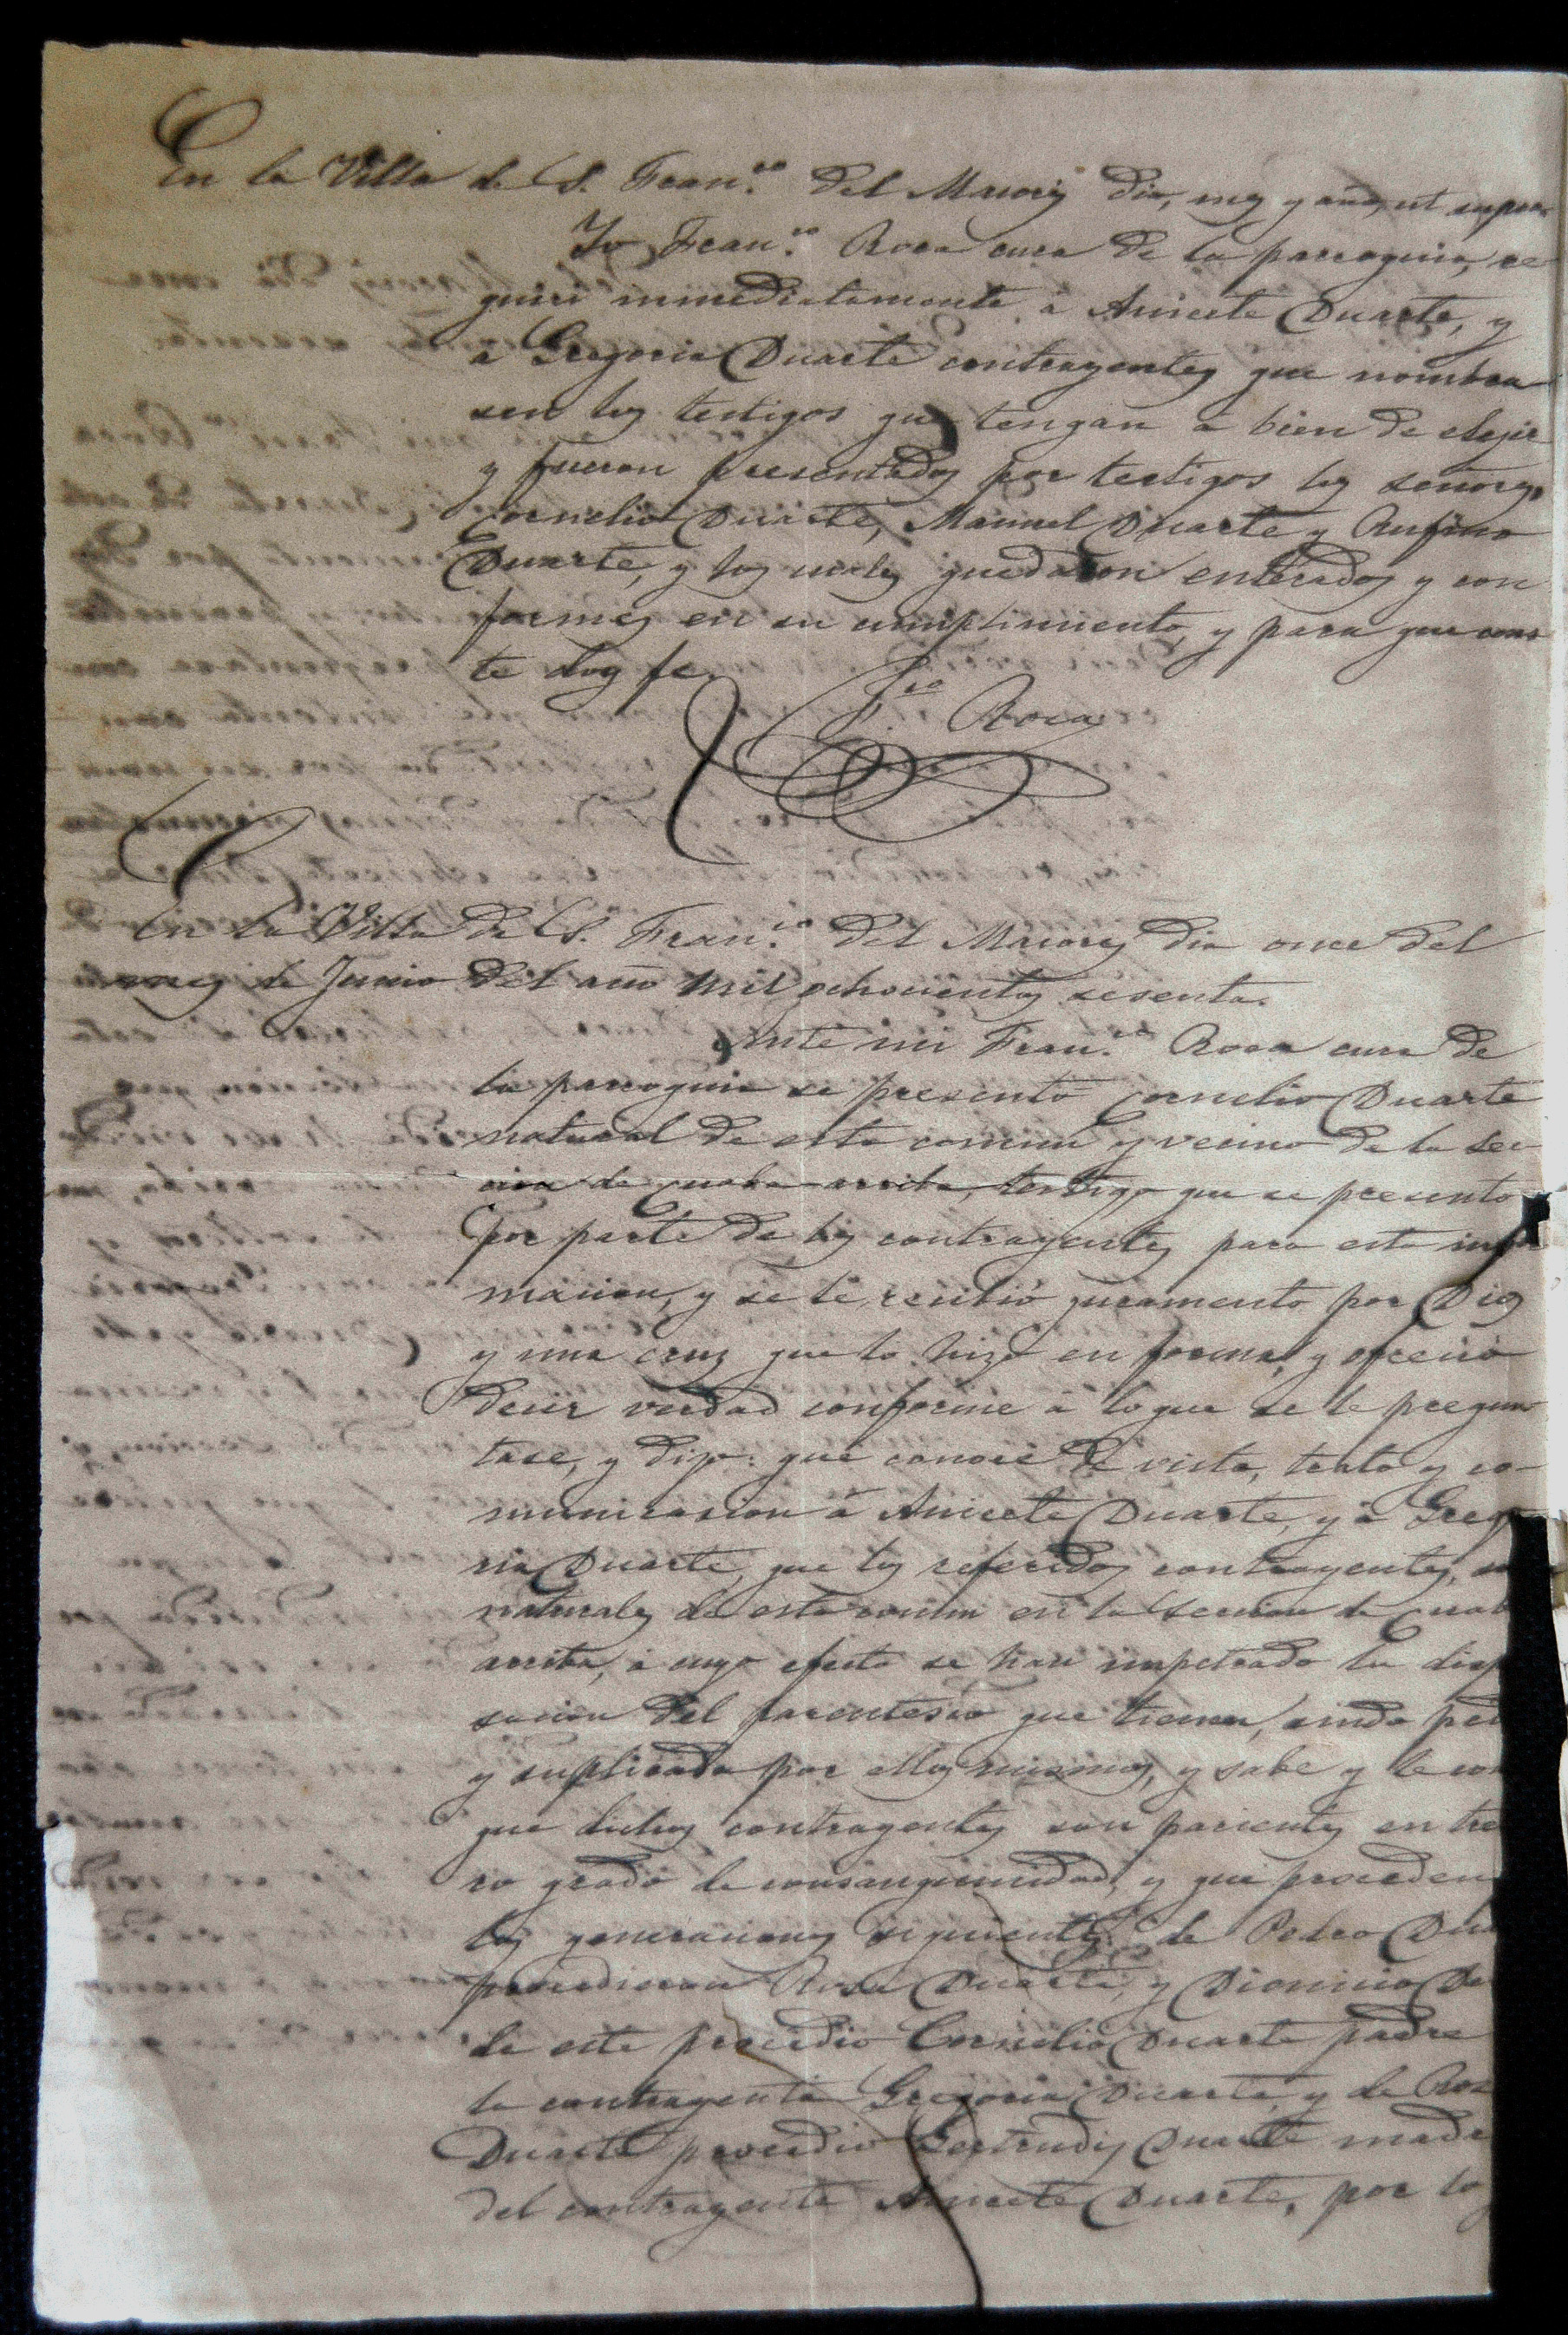 En la Villa de S. Fran.co del Macoriz dia, mes y año, ut supra.
Yo Fran.co Roca cura de la parroquia, re
quiri inmediatamente á Anicete Duarte, y
á Gregoria Duarte contrayentes que nombra
sen los testigos que tengan á bien de elegir
y fueron presentados por testigos los señores
Cornelio Duarte, Manuel Duarte y Rufino
Duarte, y los cuales quedaron enterados y con
formes en su cumplimiento, y para que cons
te doy fe.
Fco Roca
En la Villa de S. Fran.co del Macoris dia once del
mes de Junio del año mil ochocientos sesenta.
Ante mi Fran.co Roca cura de
la parroquia se presentó Cornelio Duarte
natural de esta comun y vecino de la sec
cion de Cuaba arriba, testigo que se presentó
por parte de los contrayentes para esta infor
macion, y se le recibió juramento por Dios
y una cruz que lo hizo en forma, y ofreció
decir verdad conforme á lo que se le pregun
tase, y dijo: que conoce de vista, trato y co-
municasion á Anicete Duarte, y á Grego
ria Duarte, que los referidos contrayentes, son
naturales de esta comun en la seccion de Cuab
arriba, á cuyo efecto se han impetrado la disp
sacion del parentesco que tienen, siendo ped
y suplicada por ellos mismos, y sabe y le con
que dichos contrayentes son parientes en tre
ro grado de consanguinidad, y que proceden
las generaciones siguientes: de Pedro Du
procedieron Rosa Duarte, y Dionicio Du
de este procedio Cornelio Duarte padre
la contrayente Gregoria Duarte, y de Ros
Duarte procedio Gertrudis Duarte madr
del contrayente Anicete Duarte, por lo